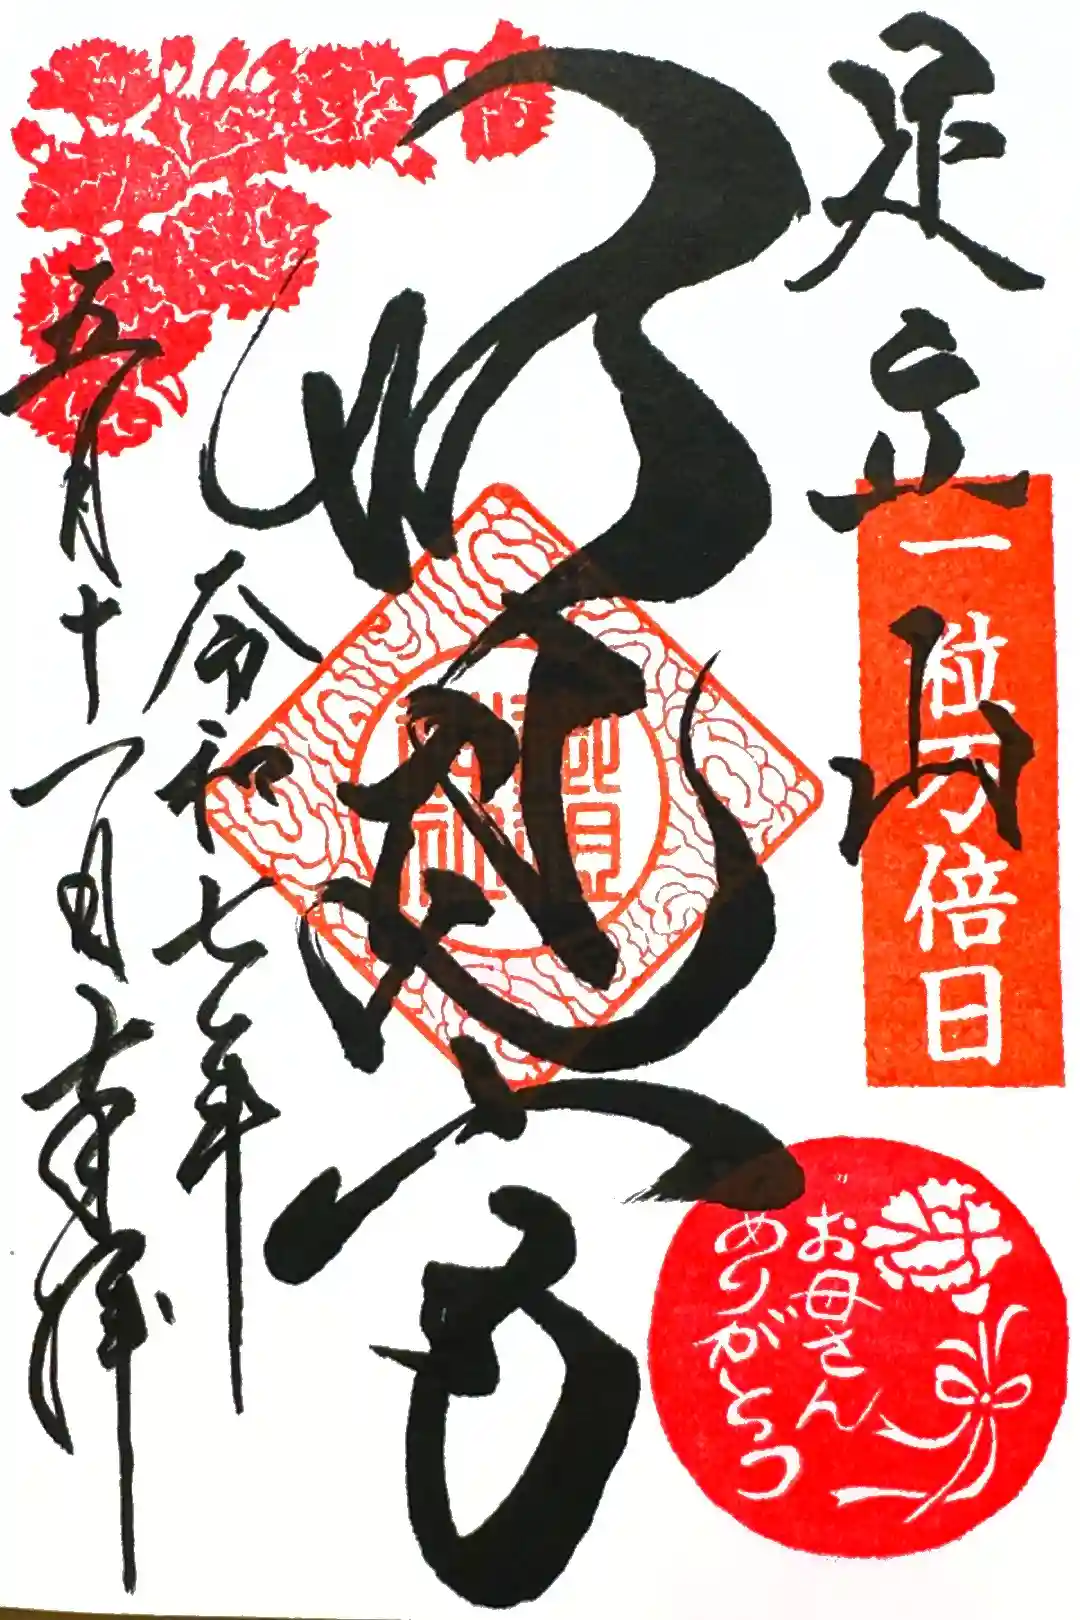 足立山
一粒万倍日
お母さん
ありがとう
妙見宮
令和七年
五月十一日奉拝